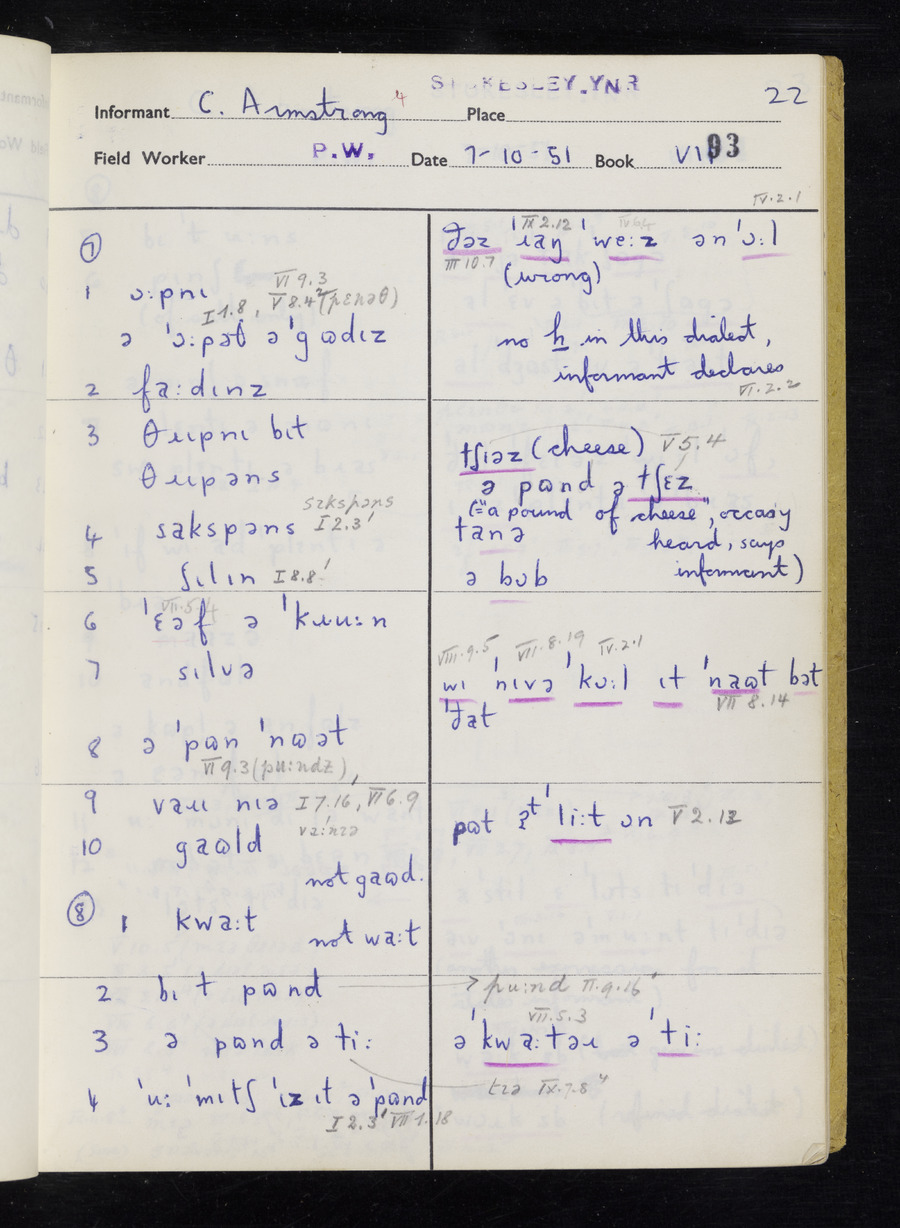 STOKESLEY.YNR
22
Informant C. Armstrong 4 Place
Field Worker P.W. Date 7-10-51 Book VII 93
IV.2.1
⑦
1 ɔ:pnɪ VI 9.3
I 1.8, V 8.4² (pɛnəθ)
ə 'ɔ:pəθ ə'gɷdɪz
2 fa:dɪnz
3 θɹɪpnɪ bɪt
θɹɪpəns
4 sakspəns sɛkspəns I 2.3'
5 ʃɪlɪn I 8.8'
VII.5.4
6 'ɛəf ə 'kɹuu:n
7 sɪlvə
8 ə 'pɷn 'nɷət
VI 9.3 (pu:ndz)
9 vaɹɪ nɪə I 7.16, VI 6.9
va:nɪə
10 gaɷld
not gaɷd.
⑧ 1 kwa:t
not wa:t
2 bɪ t pɷnd
3 ə pɷnd ə ti:
4 'u: 'mɪtʃ 'ɪz ɪt ə'pɷnd
I 2.3' VII 1.18
IX 2.12
ðəz 'ɹaŋ 'we:z ən 'ɔ:l
III 10.7
(wrong)
no h in this dialect,
informant declares
VI.2.2
tʃiəz (cheese) V 5.4
ə pɷnd ə tʃɛz
(="a pound of cheese", occasy
tanə heard, says
ə bʊb informant)
VIII.9.5 VII.8.19 IV.2.1
wɪ 'nɪvə 'kɔ:l ɪt 'naɷt bət
VII 8.14
'ðat
pɷt ʔt' li:t ɔn V 2.12
> pu:nd VI.9.16'
VII.5.3
ə 'kwa:təɹ ə 'ti:
tɪə IX.7.8⁴